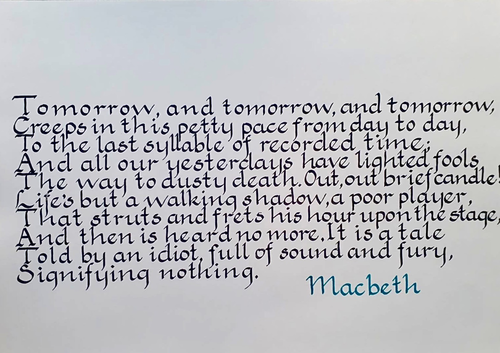 Tomorrow, and tomorrow, and tomorrow,
Creeps in this petty pace from day to day,
To the last syllable of recorded time;
And all our yesterdays have lighted fools
The way to dusty death. Out, out brief candle!
Life's but a walking shadow, a poor player,
That struts and frets his hour upon the stage,
And then is heard no more. It is a tale
Told by an idiot, full of sound and fury,
Signifying nothing.
Macbeth